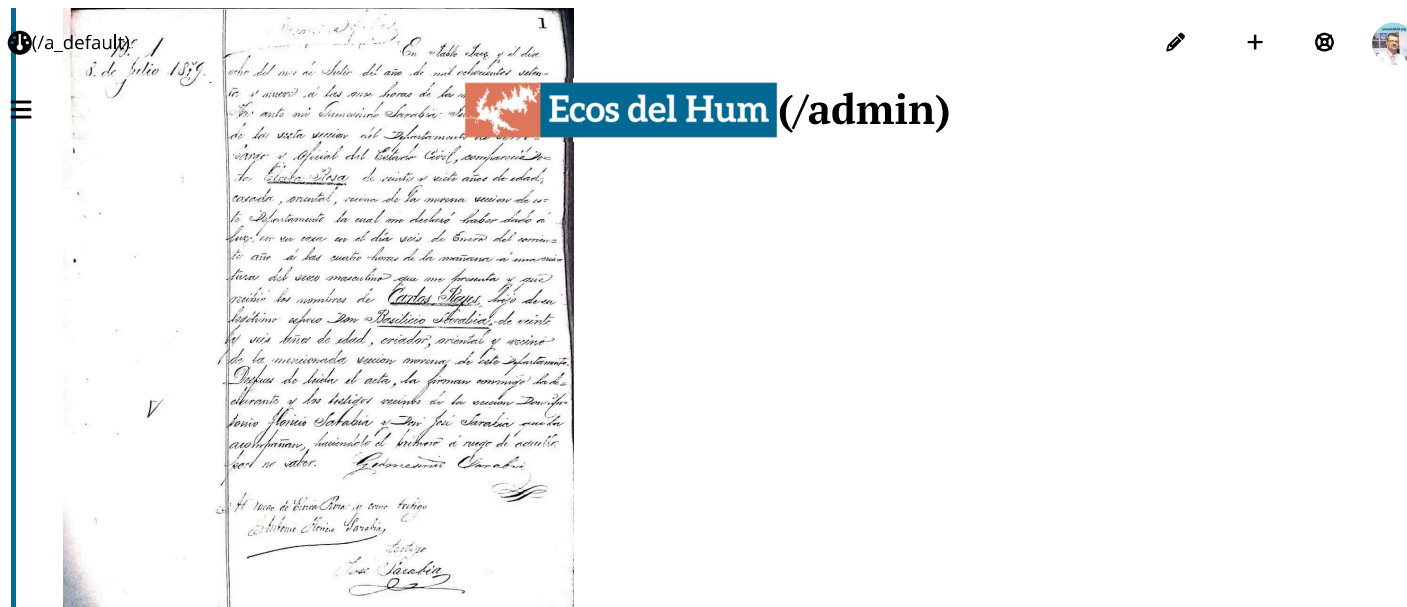 (/a_default)
Ecos del Hum (/admin)
1
Nº 1
8. de Julio 1879.
En Pablo Paez y el dia
ocho del mes de Julio del año de mil ochocientos seten-
ta y nueve á las once horas de la
ante mi Gumersindo Sarabia
de la sesta seccion del Departamento de Cerro-
Largo y Oficial del Estado Civil, compareció Do-
ña Elvira Rosa de veinte y siete años de edad,
casada, oriental, vecina de la novena seccion de es-
te Departamento la cual me declaró haber dado á
luz en su casa en el día seis de Enero del corrien-
te año á las cuatro horas de la mañana á una cria-
tura del sexo masculino que me presenta y que
recibió los nombres de Carlos Reyes, hijo de su
legítimo esposo Don Basilicio Sarabia, de veinte
y seis años de edad, criador, oriental y vecino
de la mencionada seccion novena de este Departamento.
Despues de leida el acta, la firman conmigo la de-
clarante y los testigos vecinos de la seccion Don An-
tonio Floricio Sarabia y Don José Sarabia que la
acompañan, haciendolo el primero á ruego de aquella
por no saber. Sarabia
A ruego de Elvira Rosa y como testigo
Antonio Floricio Sarabia
testigo
José Sarabia